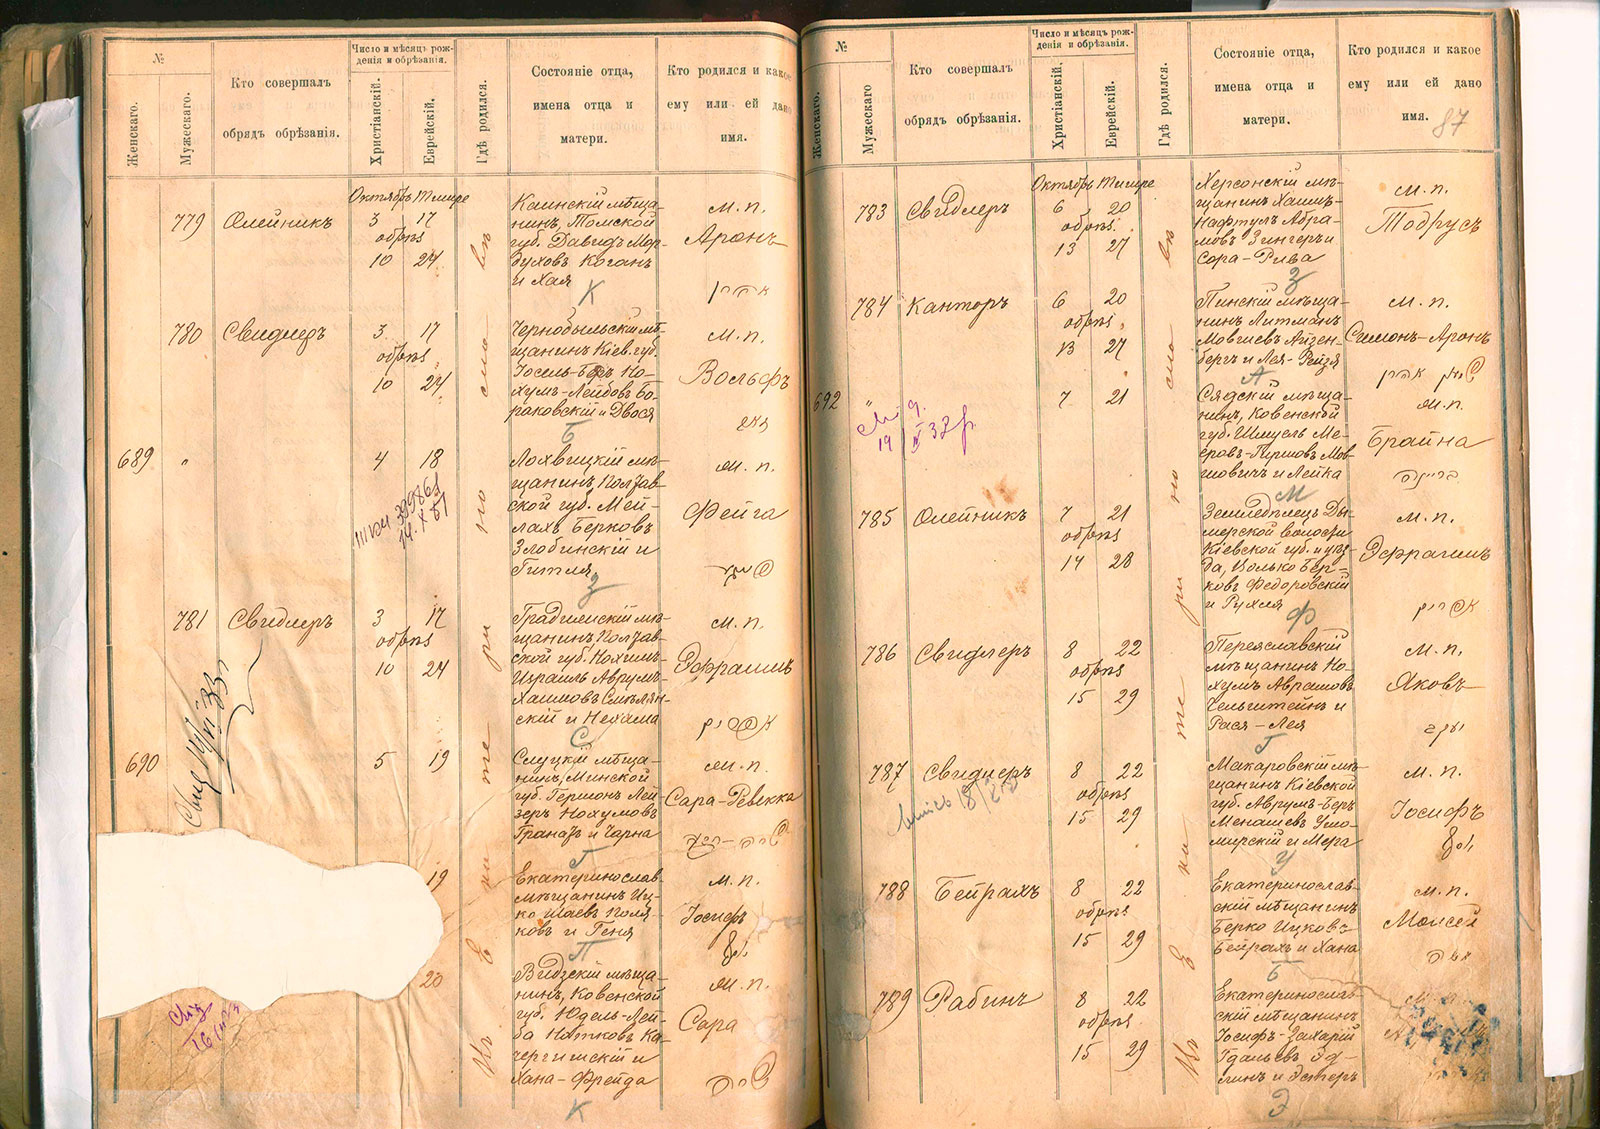 №
Женскаго.
Мужескаго.
Кто совершалъ
обрядъ обрѣзанія.
Число и мѣсяцъ рож-
денія и обрѣзанія.
Христіанскій.
Еврейскій.
Гдѣ родился.
Состояніе отца,
имена отца и
матери.
Кто родился и какое
ему или ей дано
имя.
Октябрь Тишре
779 Олейникъ 3 17
обрѣз
10 24
Каинскій мѣща-
нинъ, Томской
губ. Давидъ Мор-
духовъ Коганъ
и Хая
К
м. п.
Аронъ
780 Свидлеръ 3 17
обрѣз
10 24
Чернобыльскій мѣ-
щанинъ Кіев. губ.
Іосель-Беръ Но-
хумъ-Лейбовъ Бо-
раковскій и Двося
Б
м. п.
Вольфъ
689 " 4 18
Лохвицкій мѣ-
щанинъ, Полтав-
ской губ. Мей-
лахъ Берковъ
Злобинскій и
Гитля
З
ж. п.
Фейга
781 Свидлеръ 3 17
обрѣз
10 24
Градижскій мѣ-
щанинъ Полтав-
ской губ. Нохимъ-
Израиль Аврумъ-
Хаимовъ Смѣлян-
скій и Нехама
С
м. п.
Эфраимъ
690 5 19
Слуцкій мѣща-
нинъ, Минской
губ. Гершонъ Лей-
зеръ Нохумовъ
Гранатъ и Чарна
Г
ж. п.
Сара-Ревекка
19
Екатеринослав.
мѣщанинъ Иц-
ко Шаевъ Поля-
ковъ и Геня
П
м. п.
Іосифъ
20
Видзскій мѣща-
нинъ, Ковенской
губ. Юдель-Лей-
ба Нотковъ Ка-
чергинскій и
Хана-Фрейда
К
ж. п.
Сара
Въ Екатеринославѣ
№
Женскаго.
Мужескаго
Кто совершалъ
обрядъ обрѣзанія.
Число и мѣсяцъ рож-
денія и обрѣзанія.
Христіанскій.
Еврейскій.
Гдѣ родился.
Состояніе отца,
имена отца и
матери.
Кто родился и какое
ему или ей дано
имя.
87
Октябрь Тишре
783 Свидлеръ 6 20
обрѣз.
13 27
Херсонскій мѣ-
щанин Хаимъ-
Нафтулъ Абра-
мовъ Зингеръ и
Сора-Рива
З
м. п.
Тодрусъ
784 Канторъ 6 20
обрѣз
13 27
Пинскій мѣща-
нинъ Литманъ
Мовшевъ Айзен-
бергъ и Лея-Рейзя
А
м. п.
Симонъ-Аронъ
692 " 7 21
Сядскій мѣща-
нинъ, Ковенской
губ. Шмуель Ме-
еровъ-Гиршовъ Мов-
шовичъ и Лейка
М
ж. п.
Брайна
785 Олейникъ 7 21
обрѣз
14 28
Землевлецъ Ды-
мерской волости
Кіевской губ. и уѣз-
да, Волько Бер-
ковъ Федоровскій
и Рухля
Ф
м. п.
Эфраимъ
786 Свидлеръ 8 22
обрѣз
15 29
Переяславскій
мѣщанинъ Но-
хумъ Аврамовъ
Гельштейнъ и
Рася-Лея
Г
м. п.
Яковъ
787 Свидлеръ 8 22
обрѣз
15 29
Макаровскій мѣ-
щанинъ Кіевской
губ. Аврумъ-Беръ
Менашевъ Ушо-
мирскій и Мера
У
м. п.
Іосифъ
788 Бейрахъ 8 22
обрѣз
15 29
Екатеринослав-
скій мѣщанинъ
Берко Ицковъ
Бейрахъ и Хана
Б
м. п.
Моисей
789 Рабинъ 8 22
обрѣз
15 29
Екатеринослав-
скій мѣщанинъ
Іосифъ-Захарій
Гдальевъ Эд-
линъ и Эстеръ
Э
Въ Екатеринославѣ